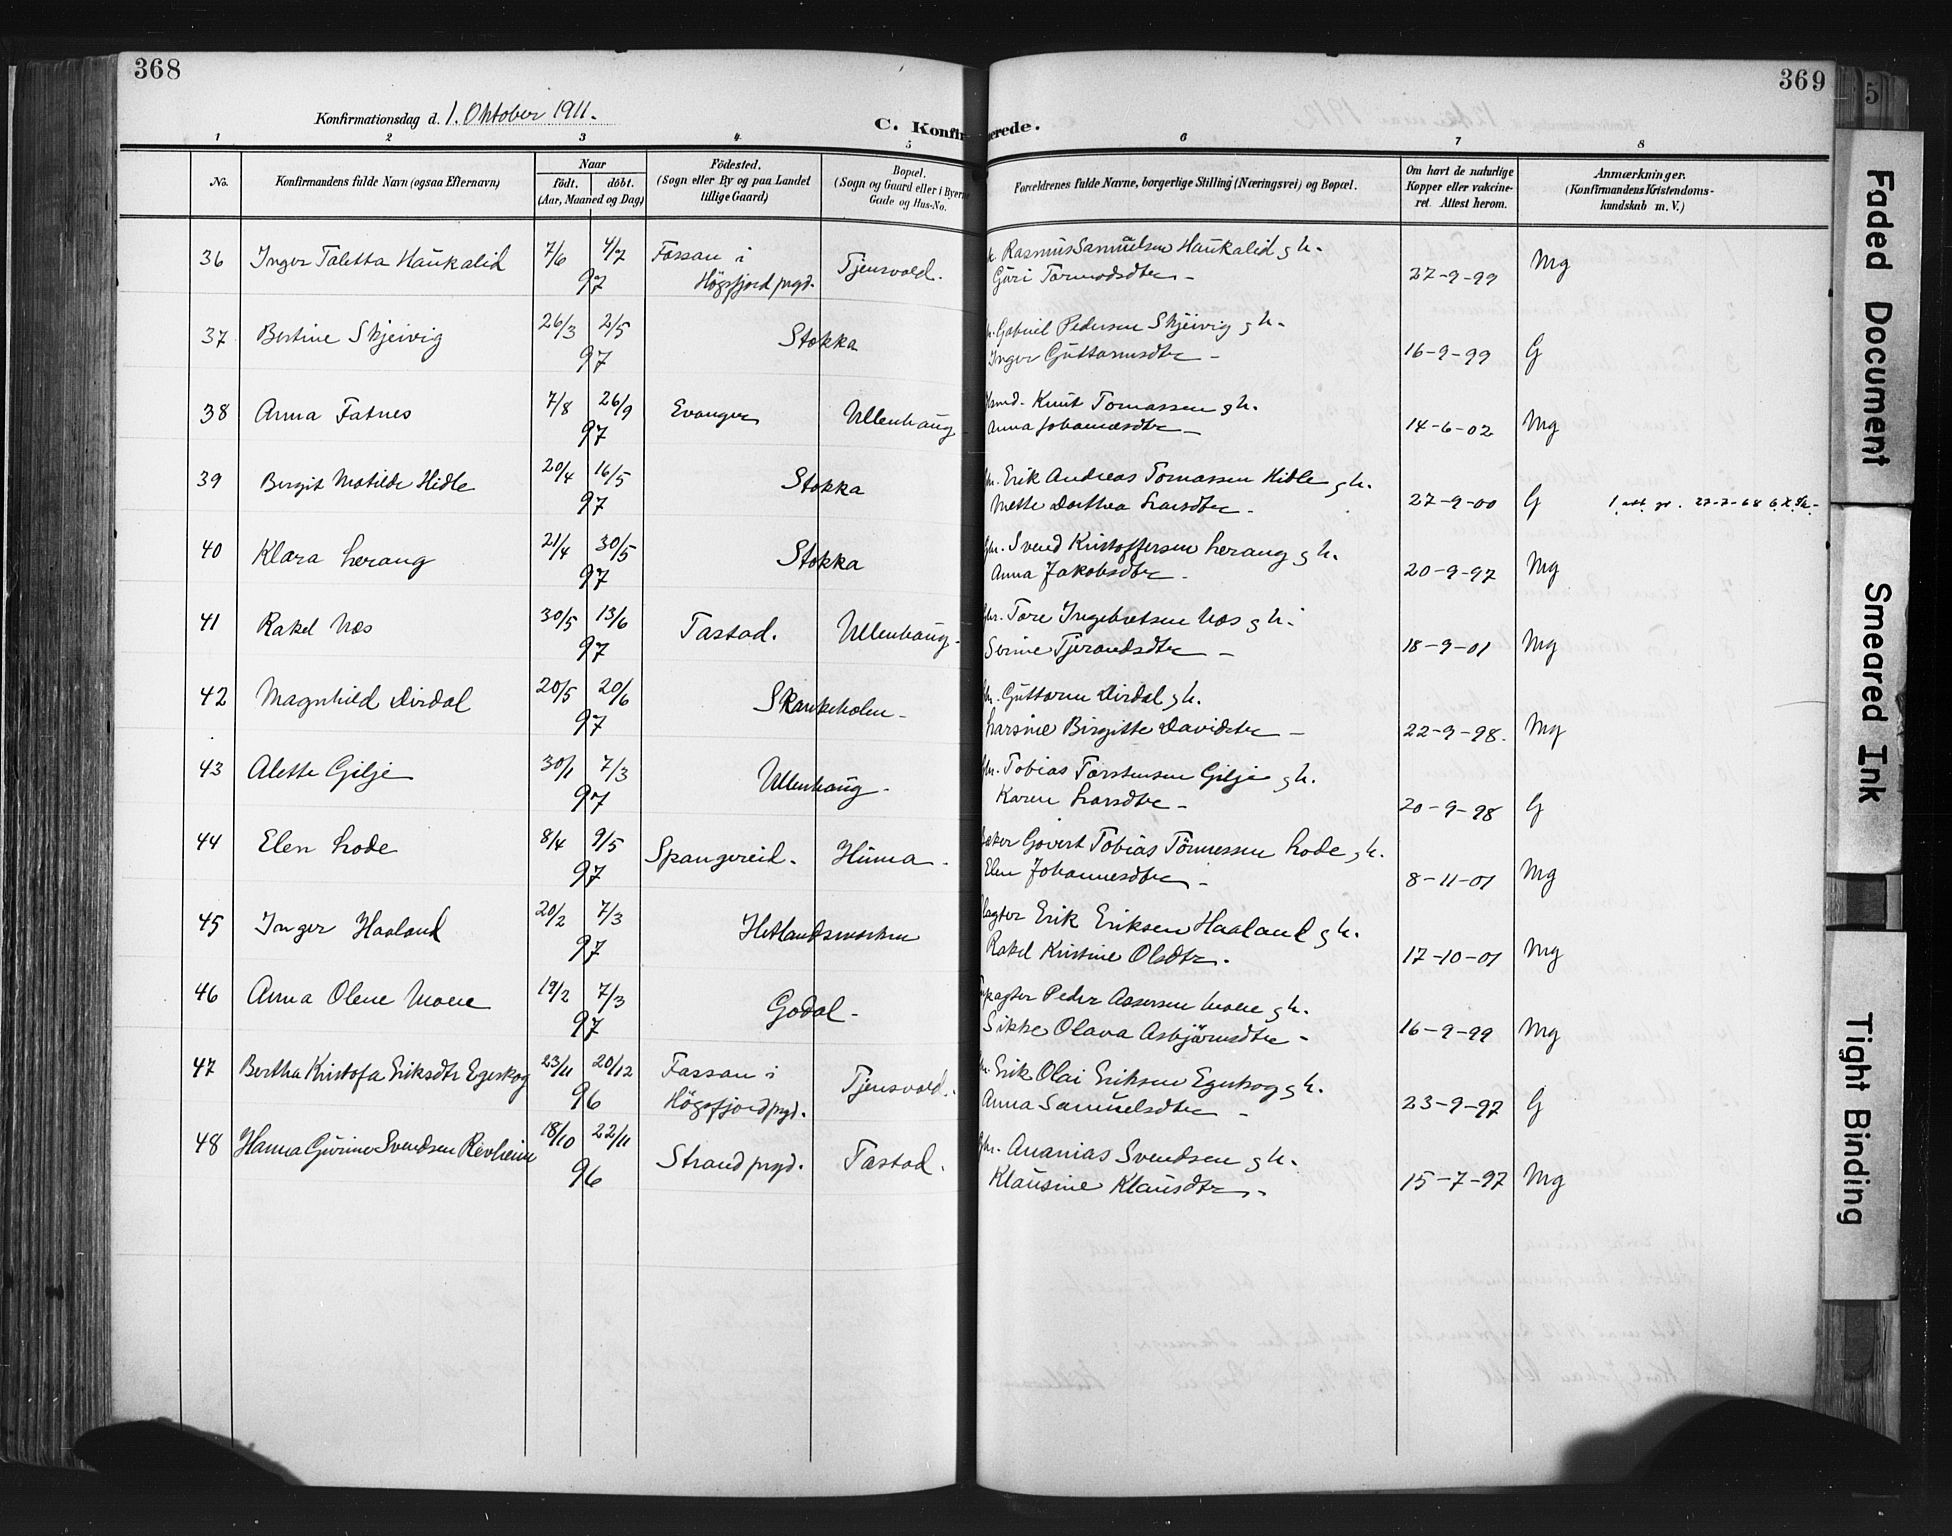 368
369
5
Konfirmationsdag d. 1. Oktober 1911.
C. Konfirmerede.
1 2 3 4 5 6 7 8
No.
Konfirmandens fulde Navn (ogsaa Efternavn)
Naar
födt. döbt.
(Aar, Maaned og Dag)
Födested.
(Sogn eller By og paa Landet
tillige Gaard)
Bopæl.
(Sogn og Gaard eller i Byerne
Gade og Hus-No.
Forældrenes fulde Navne, borgerlige Stilling (Næringsvei) og Bopæl.
Om havt de naturlige
Kopper eller vakcine-
ret. Attest herom.
Anmærkninger.
(Konfirmandens Kristendoms-
kundskab m. V.)
36 Inger Taletta Haukalid 7/6 4/7 97 Fossan i Högsfjord prgd. Tjensvold.
Rasmus Samuelsen Haukalid g h.
Guri Tormodsdtr - 27-9-99 Mg
37 Bertine Skjeivig 26/3 2/5 97 Stokka
Gabriel Pedersen Skjeivig g h.
Inger Guttormsdtr - 16-9-99 G
38 Anna Fatnes 7/8 26/9 97 Evanger Ullenhaug
Knut Tomassen g h.
Anna Johannesdtr - 14-6-02 Mg
39 Bergit Matilde Hidle 20/4 16/5 97 Stokka
Erik Andreas Tomassen Hidle g h.
Mette Dorthea Larsdtr - 27-9-00 G
40 Klara Lerang 21/4 30/5 97 Stokka
Svend Kristoffersen Lerang g h.
Anna Jakobsdtr - 20-9-97 Mg
41 Rakel Næs 30/5 13/6 97 Tastad. Ullenhaug -
Tore Ingebretsen Næs g h.
Serine Tjerandsdtr - 18-9-01 Mg
42 Magnhild Dirdal 20/5 20/6 97 Skankeholen -
Guttorm Dirdal g h.
Larsine Birgitte Davidstr - 22-9-98. Mg
43 Alette Gilje 30/1 7/3 97 Ullenhaug -
Tobias Torstensen Gilje g h.
Karen Larsdtr - 20-9-98 G
44 Elen Lode 8/4 9/5 97 Spangereid. Hinna -
Govert Tobias Tönnessen Lode g h.
Elen Johannesdtr - 8-11-01 Mg
45 Inger Haaland 20/2 7/3 97 Hetlandsmarken
Erik Eriksen Haaland g h.
Rakel Kristine Olsdtr. 17-10-01 Mg
46 Anna Olene Moene 19/2 7/3 97 Godal -
Peder Assersen Moene g h.
Sikke Olava Asbjörnsdtr - 16-9-99 Mg
47 Bertha Kristofa Eriksdtr Egeskog 23/11 20/12 96 Fossan i Högsfjord prgd. Tjensvold.
Erik Olai Eriksen Egeskog g h.
Anna Samuelsdtr - 23-9-97 G
48 Hanna Gurine Svendsen Revheim 18/10 22/11 96 Strand prgd. Tastad.
Ananias Svendsen g h.
Klausine Klausdtr - 15-7-97 Mg
Faded Document
Smeared Ink
Tight Binding